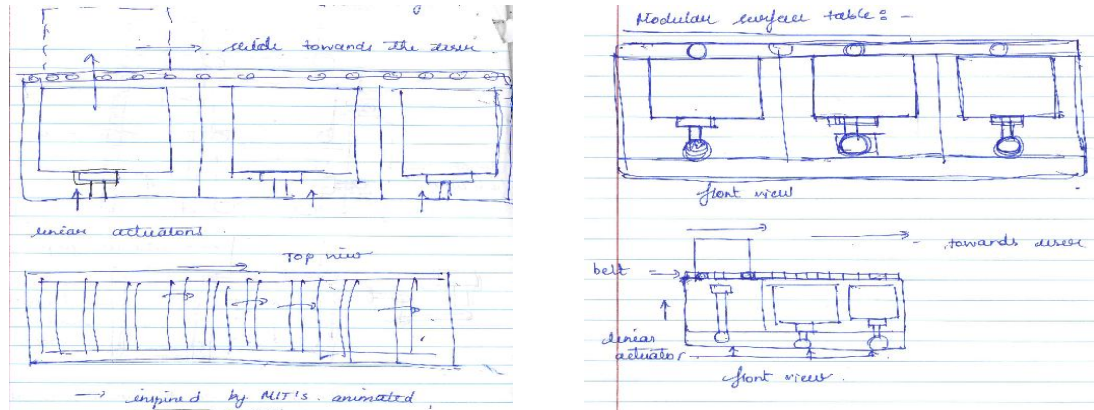 → slide towards the user.
linear actuators.
Top view
→ inspired by MIT's animated
Modular surface table: -
front view
towards user
belt →
linear
actuator
front view.